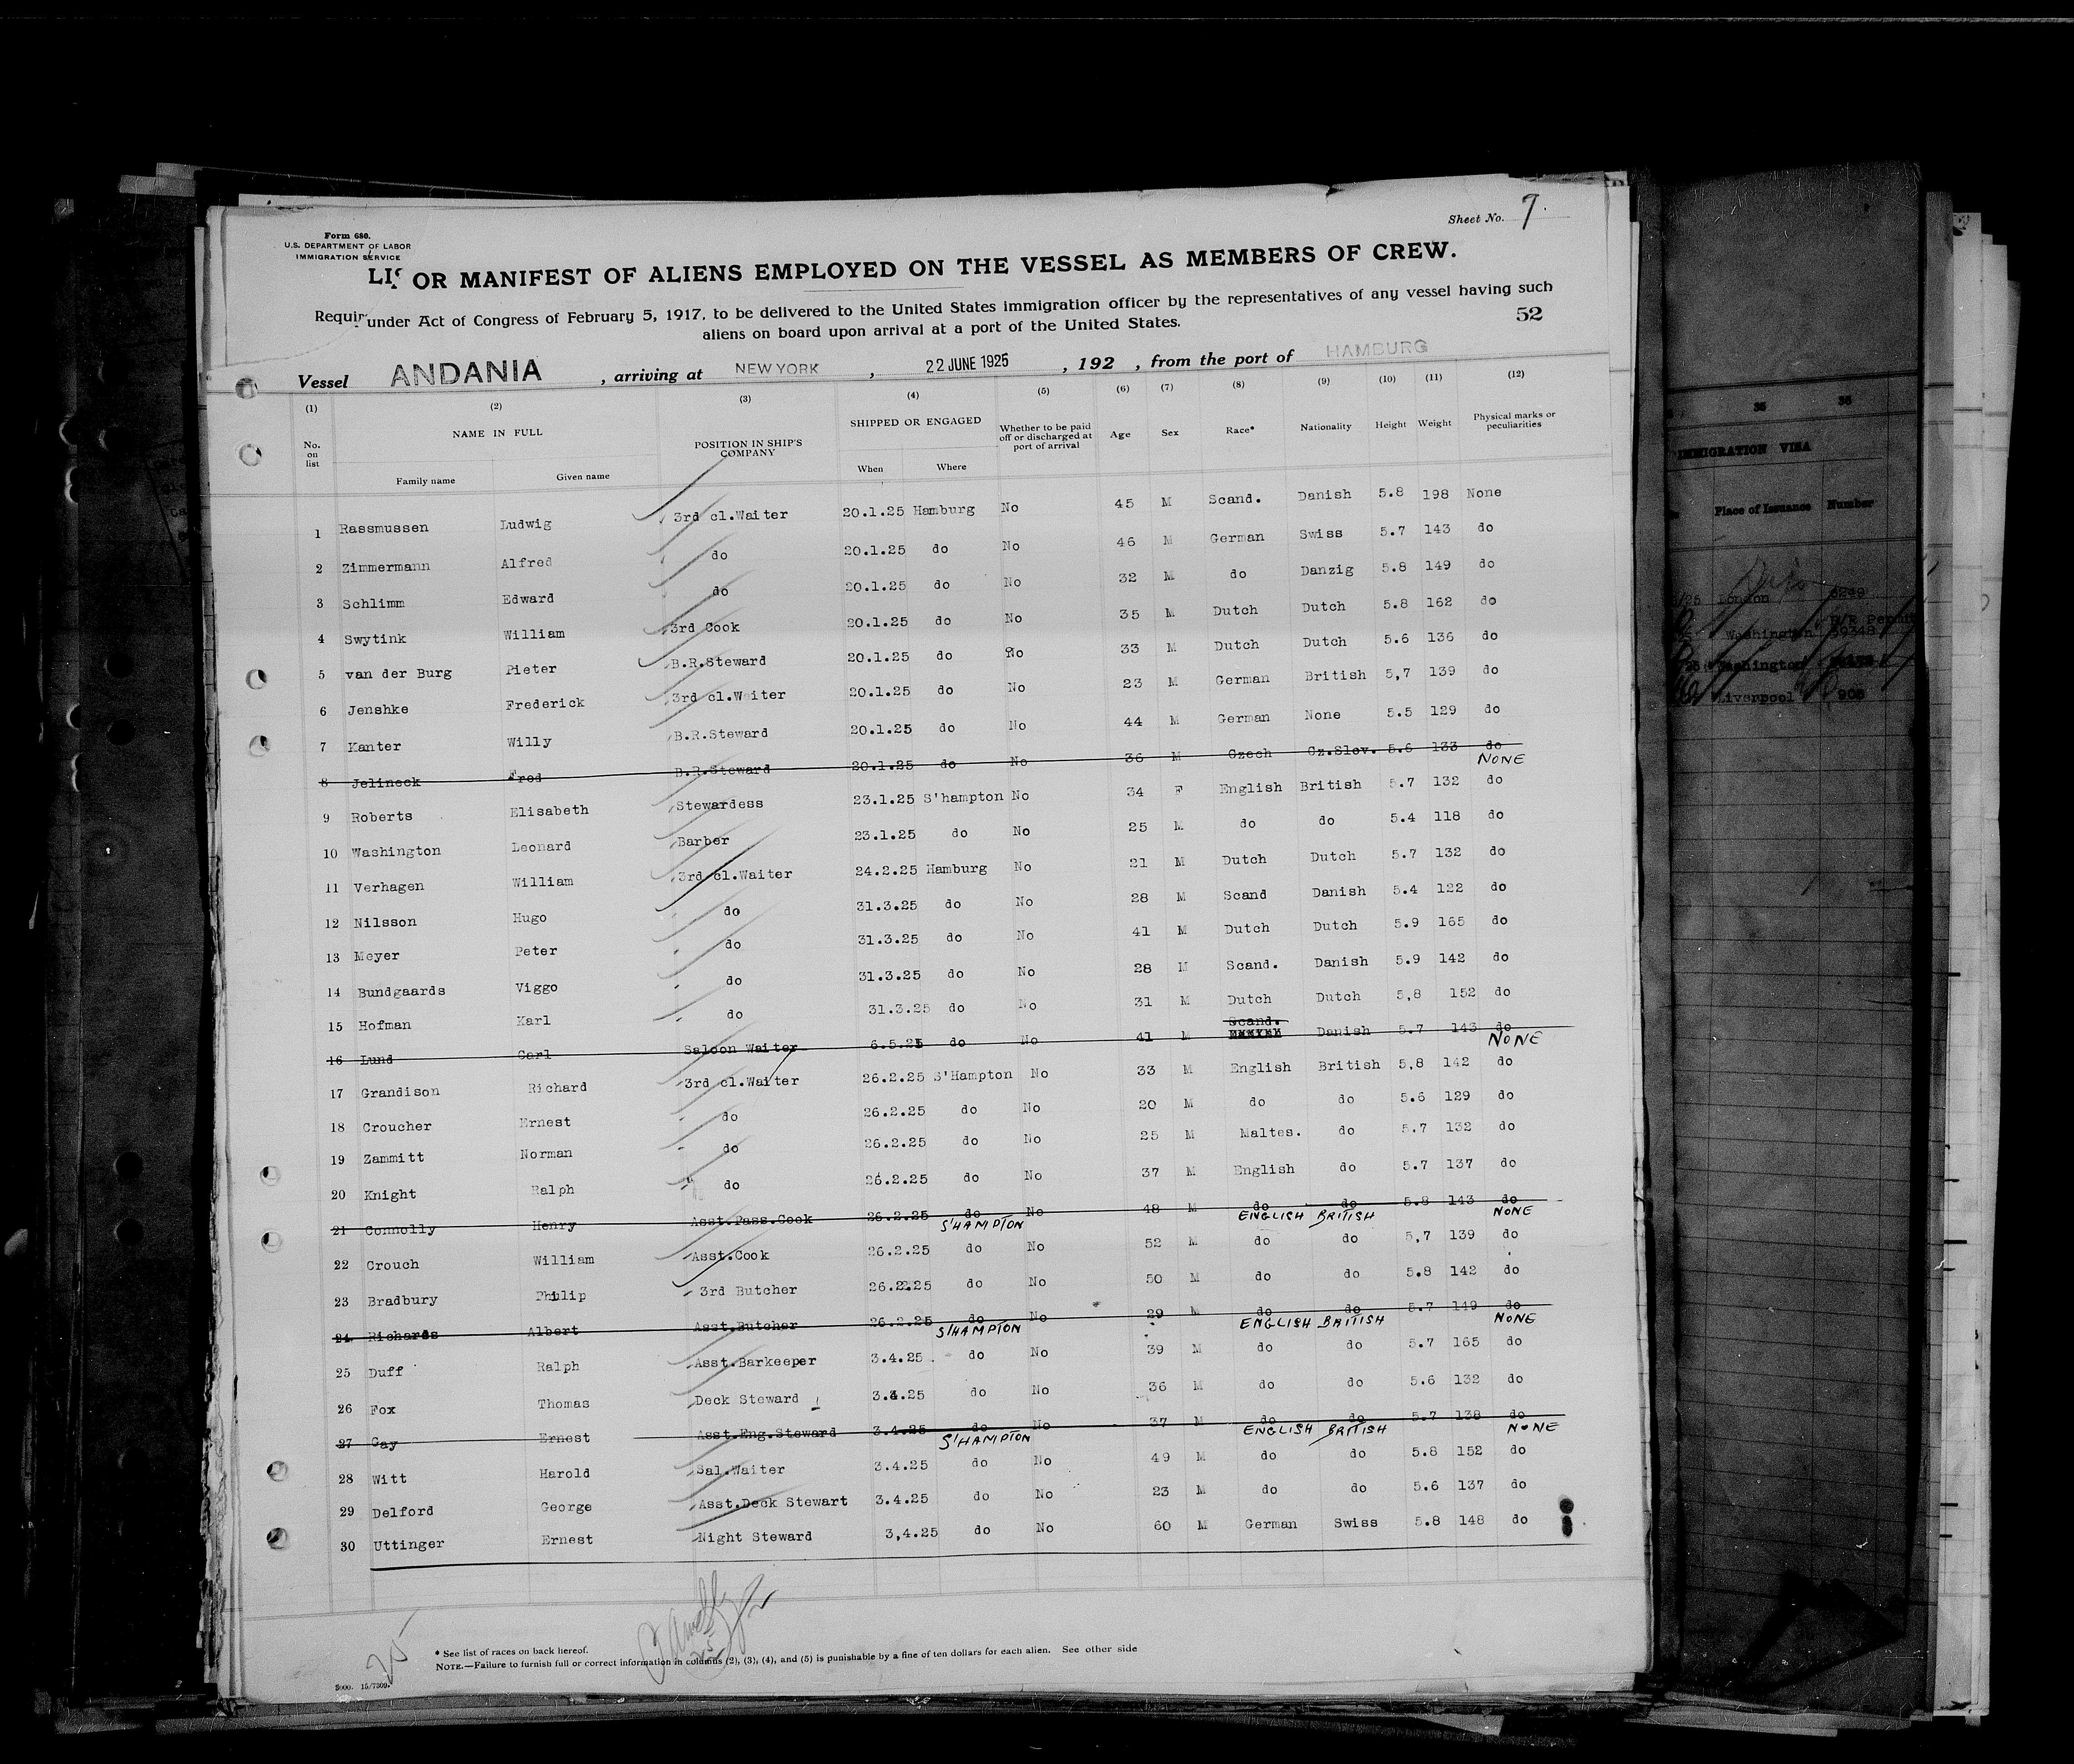 Sheet No. 7.
Form 680.
U.S. DEPARTMENT OF LABOR
IMMIGRATION SERVICE
LIS OR MANIFEST OF ALIENS EMPLOYED ON THE VESSEL AS MEMBERS OF CREW.
Requir under Act of Congress of February 5, 1917, to be delivered to the United States immigration officer by the representatives of any vessel having such
aliens on board upon arrival at a port of the United States.
52
Vessel ANDANIA, arriving at NEW YORK, 22 JUNE 1925, 192 , from the port of HAMBURG
(1) (2) (3) (4) (5) (6) (7) (8) (9) (10) (11) (12)
No. on list NAME IN FULL POSITION IN SHIP'S COMPANY SHIPPED OR ENGAGED Whether to be paid off or discharged at port of arrival Age Sex Race* Nationality Height Weight Physical marks or peculiarities
Family name Given name When Where
1 Rassmussen Ludwig 3rd cl.Waiter 20.1.25 Hamburg No 45 M Scand. Danish 5.8 198 None
2 Zimmermann Alfred do 20.1.25 do No 46 M German Swiss 5.7 143 do
3 Schlimm Edward do 20.1.25 do No 32 M do Danzig 5.8 149 do
4 Swytink William 3rd Cook 20.1.25 do No 35 M Dutch Dutch 5.8 162 do
5 van der Burg Pieter B.R.Steward 20.1.25 do No 33 M Dutch Dutch 5.6 136 do
6 Jenshke Frederick 3rd cl.Waiter 20.1.25 do No 23 M German British 5,7 139 do
7 Kanter Willy B.R.Steward 20.1.25 do No 44 M German None 5.5 129 do
8 Jelineck Fred B.R.Steward 20.1.25 do No 36 M Czech Cz.Slov. 5.6 133 do
NONE
9 Roberts Elisabeth Stewardess 23.1.25 S'hampton No 34 F English British 5.7 132 do
10 Washington Leonard Barber 23.1.25 do No 25 M do do 5.4 118 do
11 Verhagen William 3rd cl.Waiter 24.2.25 Hamburg No 21 M Dutch Dutch 5.7 132 do
12 Nilsson Hugo do 31.3.25 do No 28 M Scand Danish 5.4 122 do
13 Meyer Peter do 31.3.25 do No 41 M Dutch Dutch 5.9 165 do
14 Bundgaards Viggo do 31.3.25 do No 28 M Scand. Danish 5.9 142 do
15 Hofman Karl do 31.3.25 do No 31 M Dutch Dutch 5,8 152 do
16 Lund Carl Saloon Waiter 6.5.25 do No 41 M Scand. Danish 5.7 143 do
NONE
17 Grandison Richard 3rd cl.Waiter 26.2.25 S'Hampton No 33 M English British 5,8 142 do
18 Croucher Ernest do 26.2.25 do No 20 M do do 5.6 129 do
19 Zammitt Norman do 26.2.25 do No 25 M Maltes. do 5.7 132 do
20 Knight Ralph do 26.2.25 do No 37 M English do 5.7 137 do
21 Connolly Henry Asst.Pass.Cook 26.2.25 do No 48 M do do 5.8 143 do
S'HAMPTON ENGLISH BRITISH NONE
22 Crouch William Asst.Cook 26.2.25 do No 52 M do do 5,7 139 do
23 Bradbury Philip 3rd Butcher 26.2.25 do No 50 M do do 5.8 142 do
24 Richards Albert Asst.Butcher 26.2.25 do No 29 M do do 5.7 149 do
S'HAMPTON ENGLISH BRITISH NONE
25 Duff Ralph Asst.Barkeeper 3.4.25 do No 39 M do do 5.7 165 do
26 Fox Thomas Deck Steward 3.4.25 do No 36 M do do 5.6 132 do
27 Gay Ernest Asst.Eng.Steward 3.4.25 do No 37 M do do 5.7 138 do
S'HAMPTON ENGLISH BRITISH NONE
28 Witt Harold Sal.Waiter 3.4.25 do No 49 M do do 5.8 152 do
29 Delford George Asst.Deck Stewart 3.4.25 do No 23 M do do 5.6 137 do
30 Uttinger Ernest Night Steward 3,4.25 do No 60 M German Swiss 5.8 148 do
25
* See list of races on back hereof.
NOTE.—Failure to furnish full or correct information in columns (2), (3), (4), and (5) is punishable by a fine of ten dollars for each alien. See other side
35 35
IMMIGRATION VISA
Place of Issuance Number
London
Washington 59348
Washington
Liverpool 905